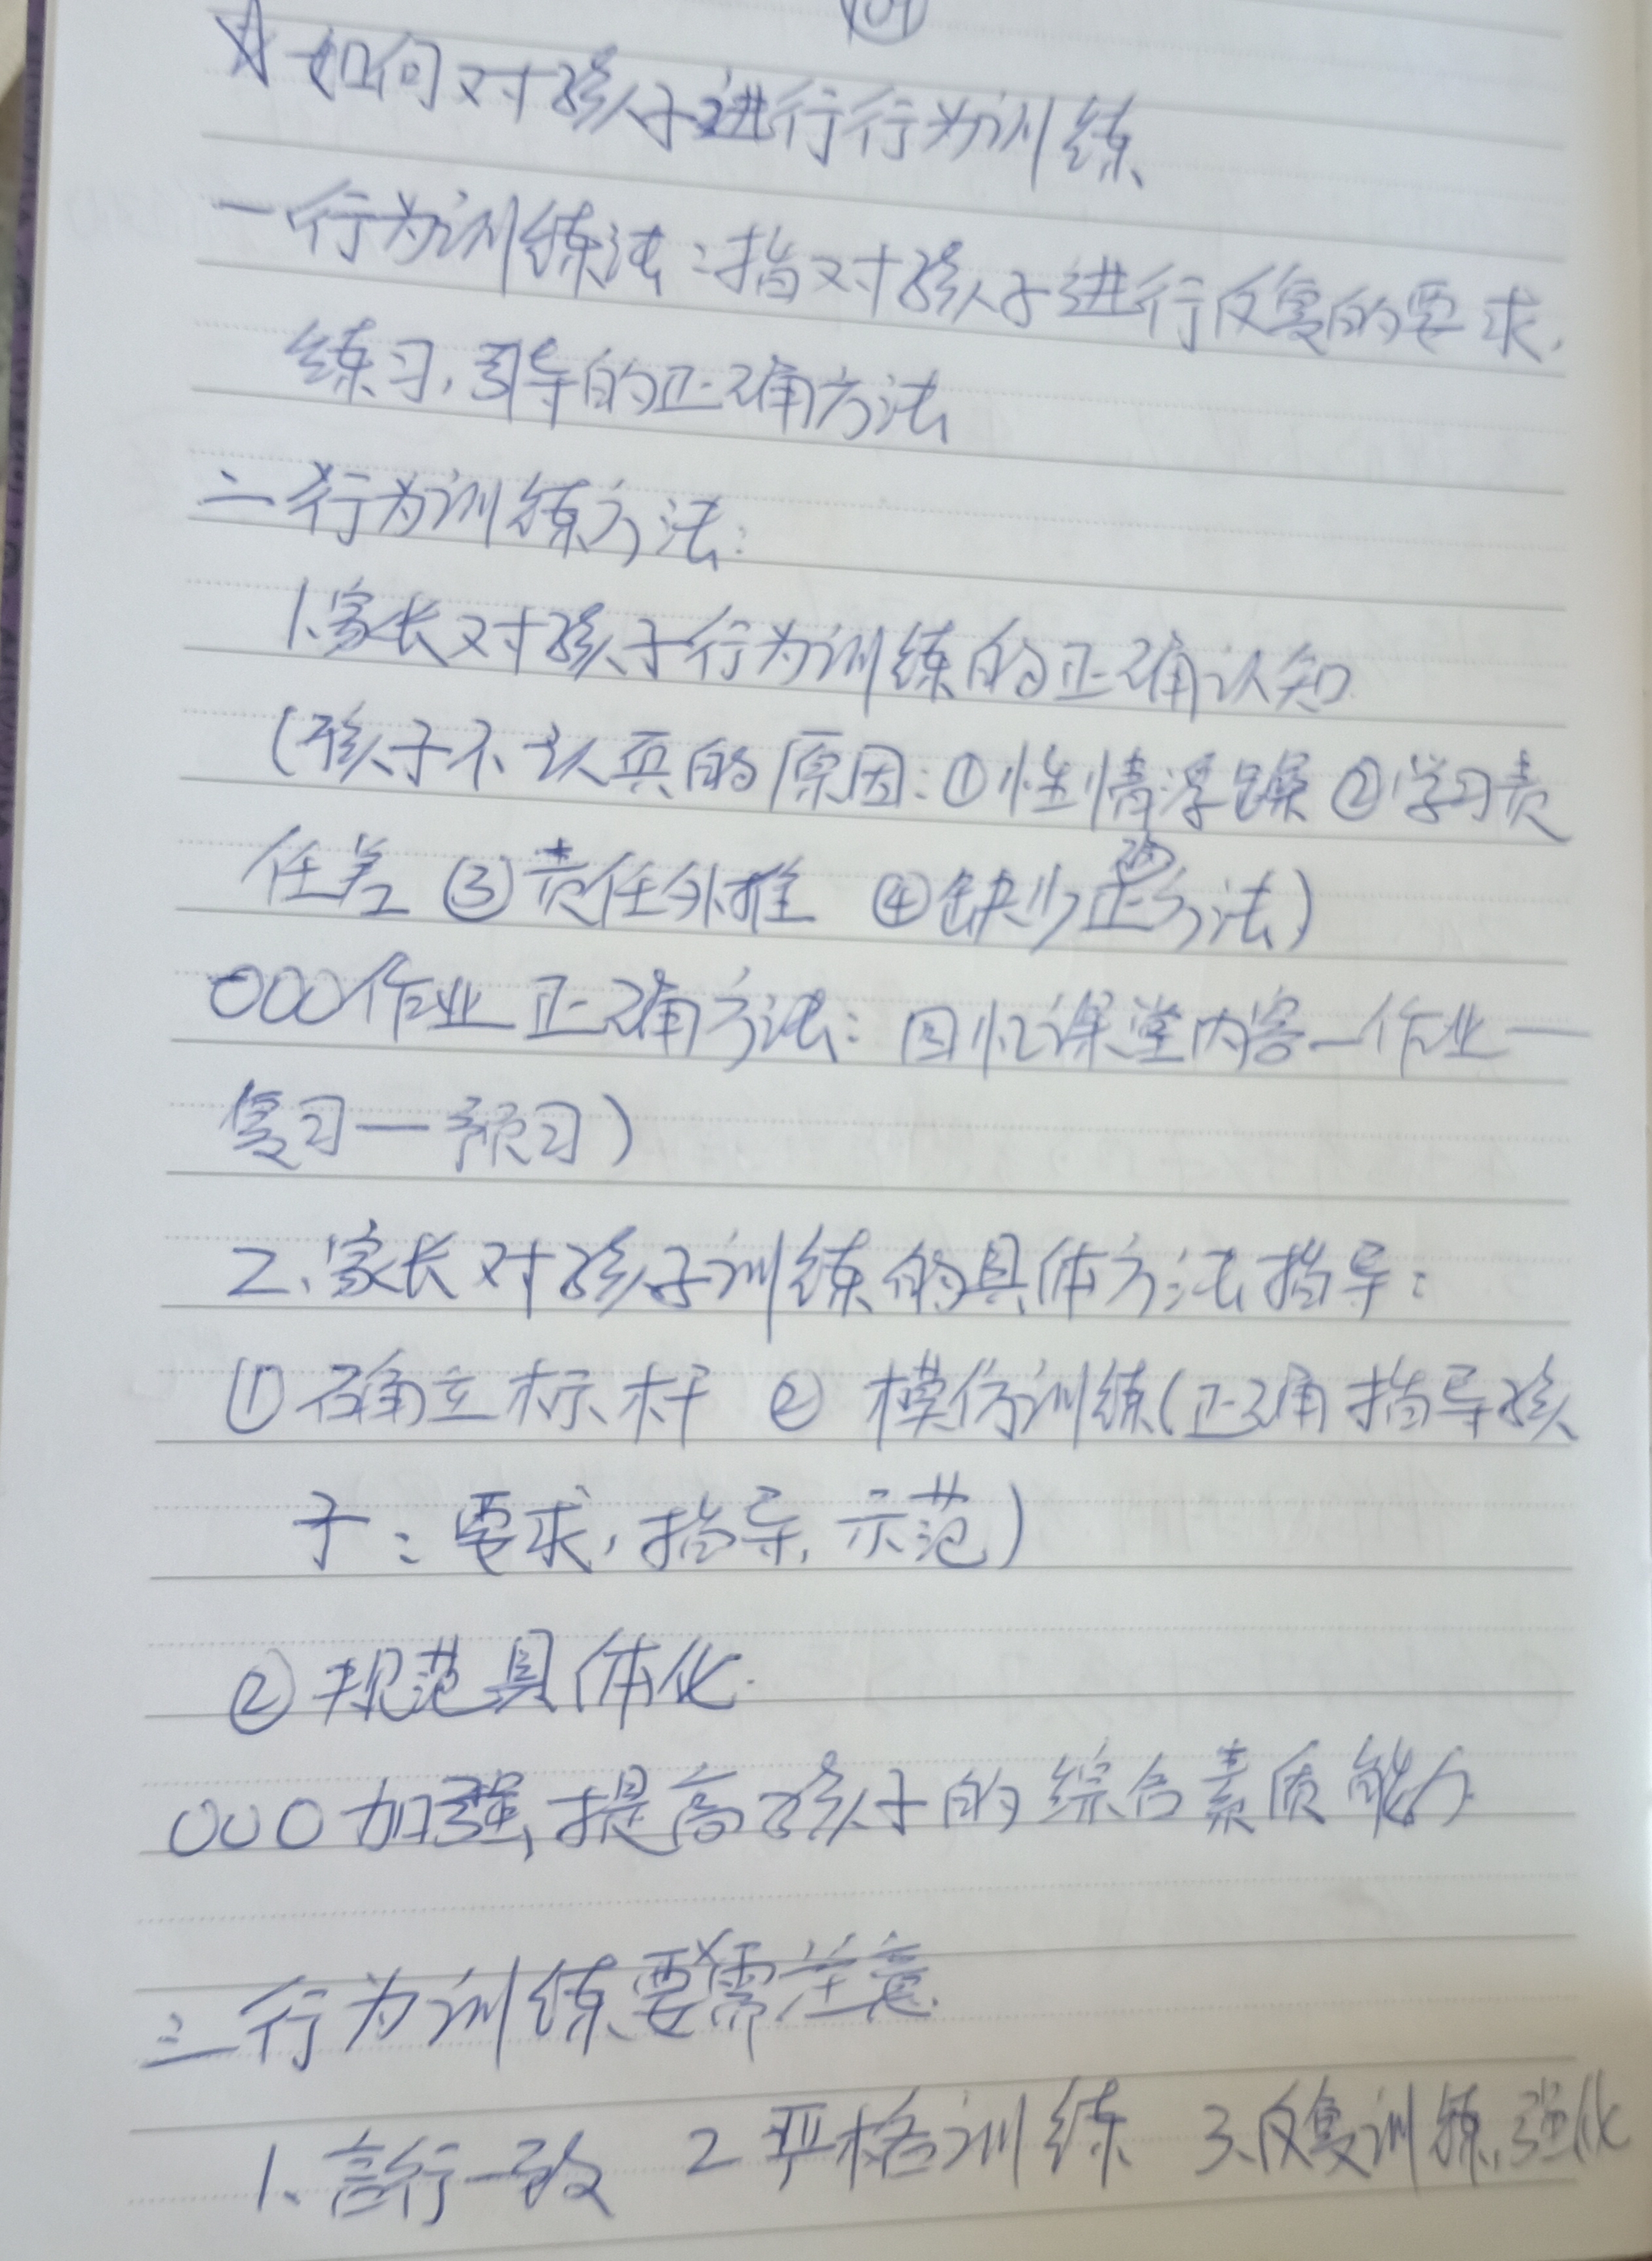 ☆如何对孩子进行行为训练
一行为训练法:指对孩子进行反复的要求,
练习,引导的正确方法
二行为训练方法:
1.家长对孩子行为训练的正确认知
(孩子不认真的原因:①性情浮躁②学习责
任差 ③责任外推 ④缺少正确方法)
000作业正确方法:回忆课堂内容—作业—
复习—预习)
2、家长对孩子训练的具体方法指导:
①确立标杆 ② 模仿训练(正确指导孩
子:要求,指导,示范)
②规范具体化.
000加强,提高孩子的综合素质能力
三行为训练要需注意
1、言行一致 2严格训练 3、反复训练,强化